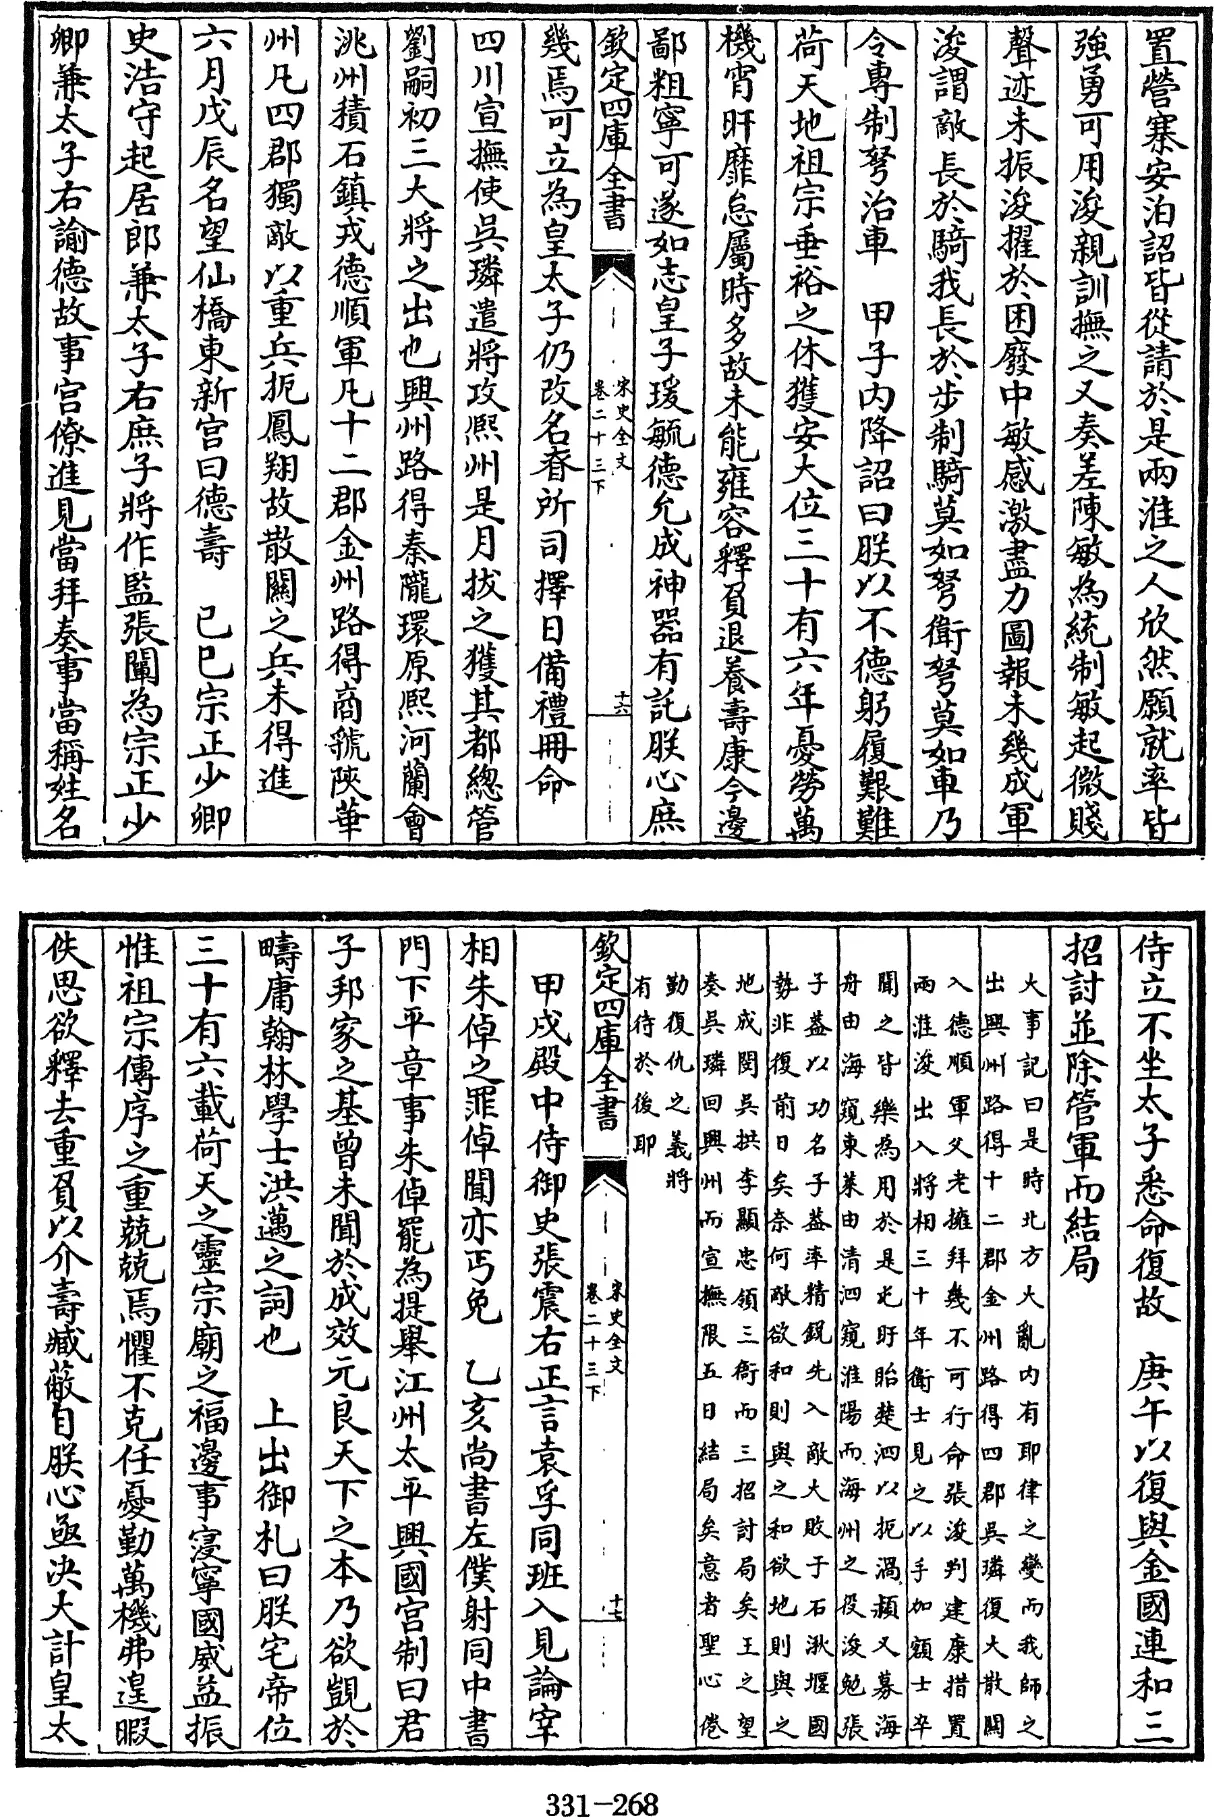 置營寨安泊詔皆從請於是兩淮之人欣然願就率皆
強勇可用浚親訓撫之又奏差陳敏為統制敏起微賤
聲迹未振浚擢於困廢中敏感激盡力圖報未幾成軍
浚謂敵長於騎我長於步制騎莫如弩衛弩莫如車乃
令專制弩治車　甲子内降詔曰朕以不德躬履艱難
荷天地祖宗垂裕之休獲安大位三十有六年憂勞萬
機宵旰靡怠屬時多故未能雍容釋負退養壽康今邊
鄙粗寧可遂如志皇子瑗毓德允成神器有託朕心庶
欽定四庫全書
宋史全文
卷二十三下
十六
幾焉可立為皇太子仍改名眘所司擇日備禮冊命
四川宣撫使吳璘遣將攻熈州是月拔之獲其都總管
劉嗣初三大將之出也興州路得秦隴環原熈河蘭會
洮州積石鎮戎德順軍凡十二郡金州路得商虢陜華
州凡四郡獨敵以重兵扼鳳翔故散關之兵未得進
六月戊辰名望仙橋東新宫曰德壽　己巳宗正少卿
史浩守起居郎兼太子右庶子將作監張闡為宗正少
卿兼太子右諭德故事宫僚進見當拜奏事當稱姓名
侍立不坐太子悉命復故　庚午以復與金國連和三
招討並除管軍而結局
大事記曰是時北方大亂内有耶律之變而我師之
出興州路得十二郡金州路得四郡吳璘復大散關
入德順軍父老擁拜幾不可行命張浚判建康措置
兩淮浚出入將相三十年衛士見之以手加額士卒
聞之皆樂為用於是屯盱眙楚泗以扼渦潁又募海
舟由海窺東萊由清泗窺淮陽而海州之役浚勉張
子蓋以功名子蓋率精銳先入敵大敗于石湫堰國
勢非復前日矣奈何敵欲和則與之和欲地則與之
地成閔吳拱李顯忠領三衙而三招討局矣王之望
奏吳璘回興州而宣撫限五日結局矣意者聖心倦
勤復仇之義將
有待於後耶
欽定四庫全書
宋史全文
卷二十三下
十七
甲戌殿中侍御史張震右正言袁孚同班入見論宰
相朱倬之罪倬聞亦丐免　乙亥尚書左僕射同中書
門下平章事朱倬罷為提舉江州太平興國宫制曰君
子邦家之基曾未聞於成效元良天下之本乃欲覬於
疇庸翰林學士洪邁之詞也　上出御札曰朕宅帝位
三十有六載荷天之靈宗廟之福邊事寖寧國威益振
惟祖宗傳序之重兢兢焉懼不克任憂勤萬機弗遑暇
佚思欲釋去重負以介壽臧蔽自朕心亟決大計皇太
331-268